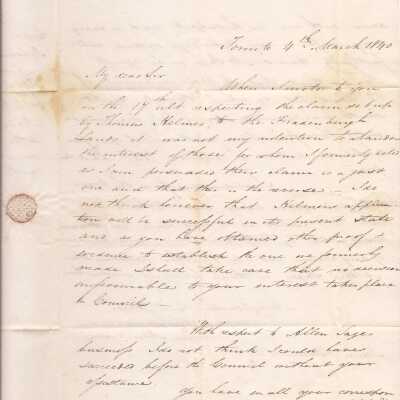 Toronto 4th March 1840
My dear Sir
When I wrote to you
on the 17th ult respecting the claim set up
by Thomas Holmes to the
Lands, it was not my intention to abandon
the interest of those for whom I formerly acted
as I am persuaded their claim is a just
one and that this is the reverse – I do
not think however that Holmes's applica
tion will be successful in its present state
and as you have obtained other proof &
evidence to establish the one as formerly
made I shall take care that no decision
unfavourable to your interest takes place
in Council –
With respect to Allen
business I do not think I could have
succeeded before the Council without your
assistance
You have in all your correspon